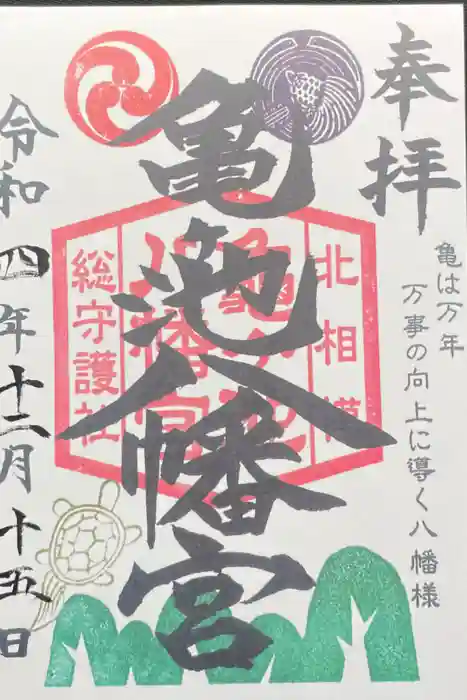 奉拝
亀は万年
万事の向上に導く八幡様
北相模
亀池八幡宮
総守護社
令和四年十二月十五日